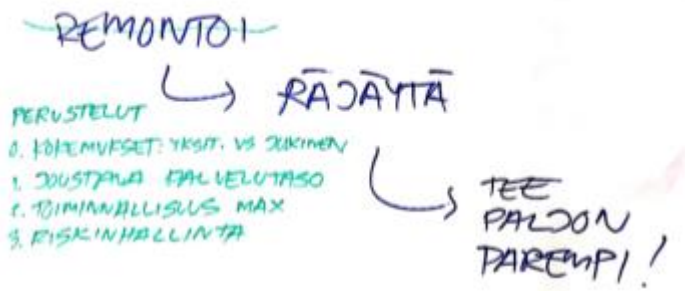 REMONTOI
RÄJÄYTÄ
PERUSTELUT
0. KOKEMUKSET: YKSIT. VS JULKINEN
1. JOUSTAVA PALVELUTASO
2. TOIMINNALLISUUS MAX
3. RISKINHALLINTA
TEE
PALJON
PAREMPI!